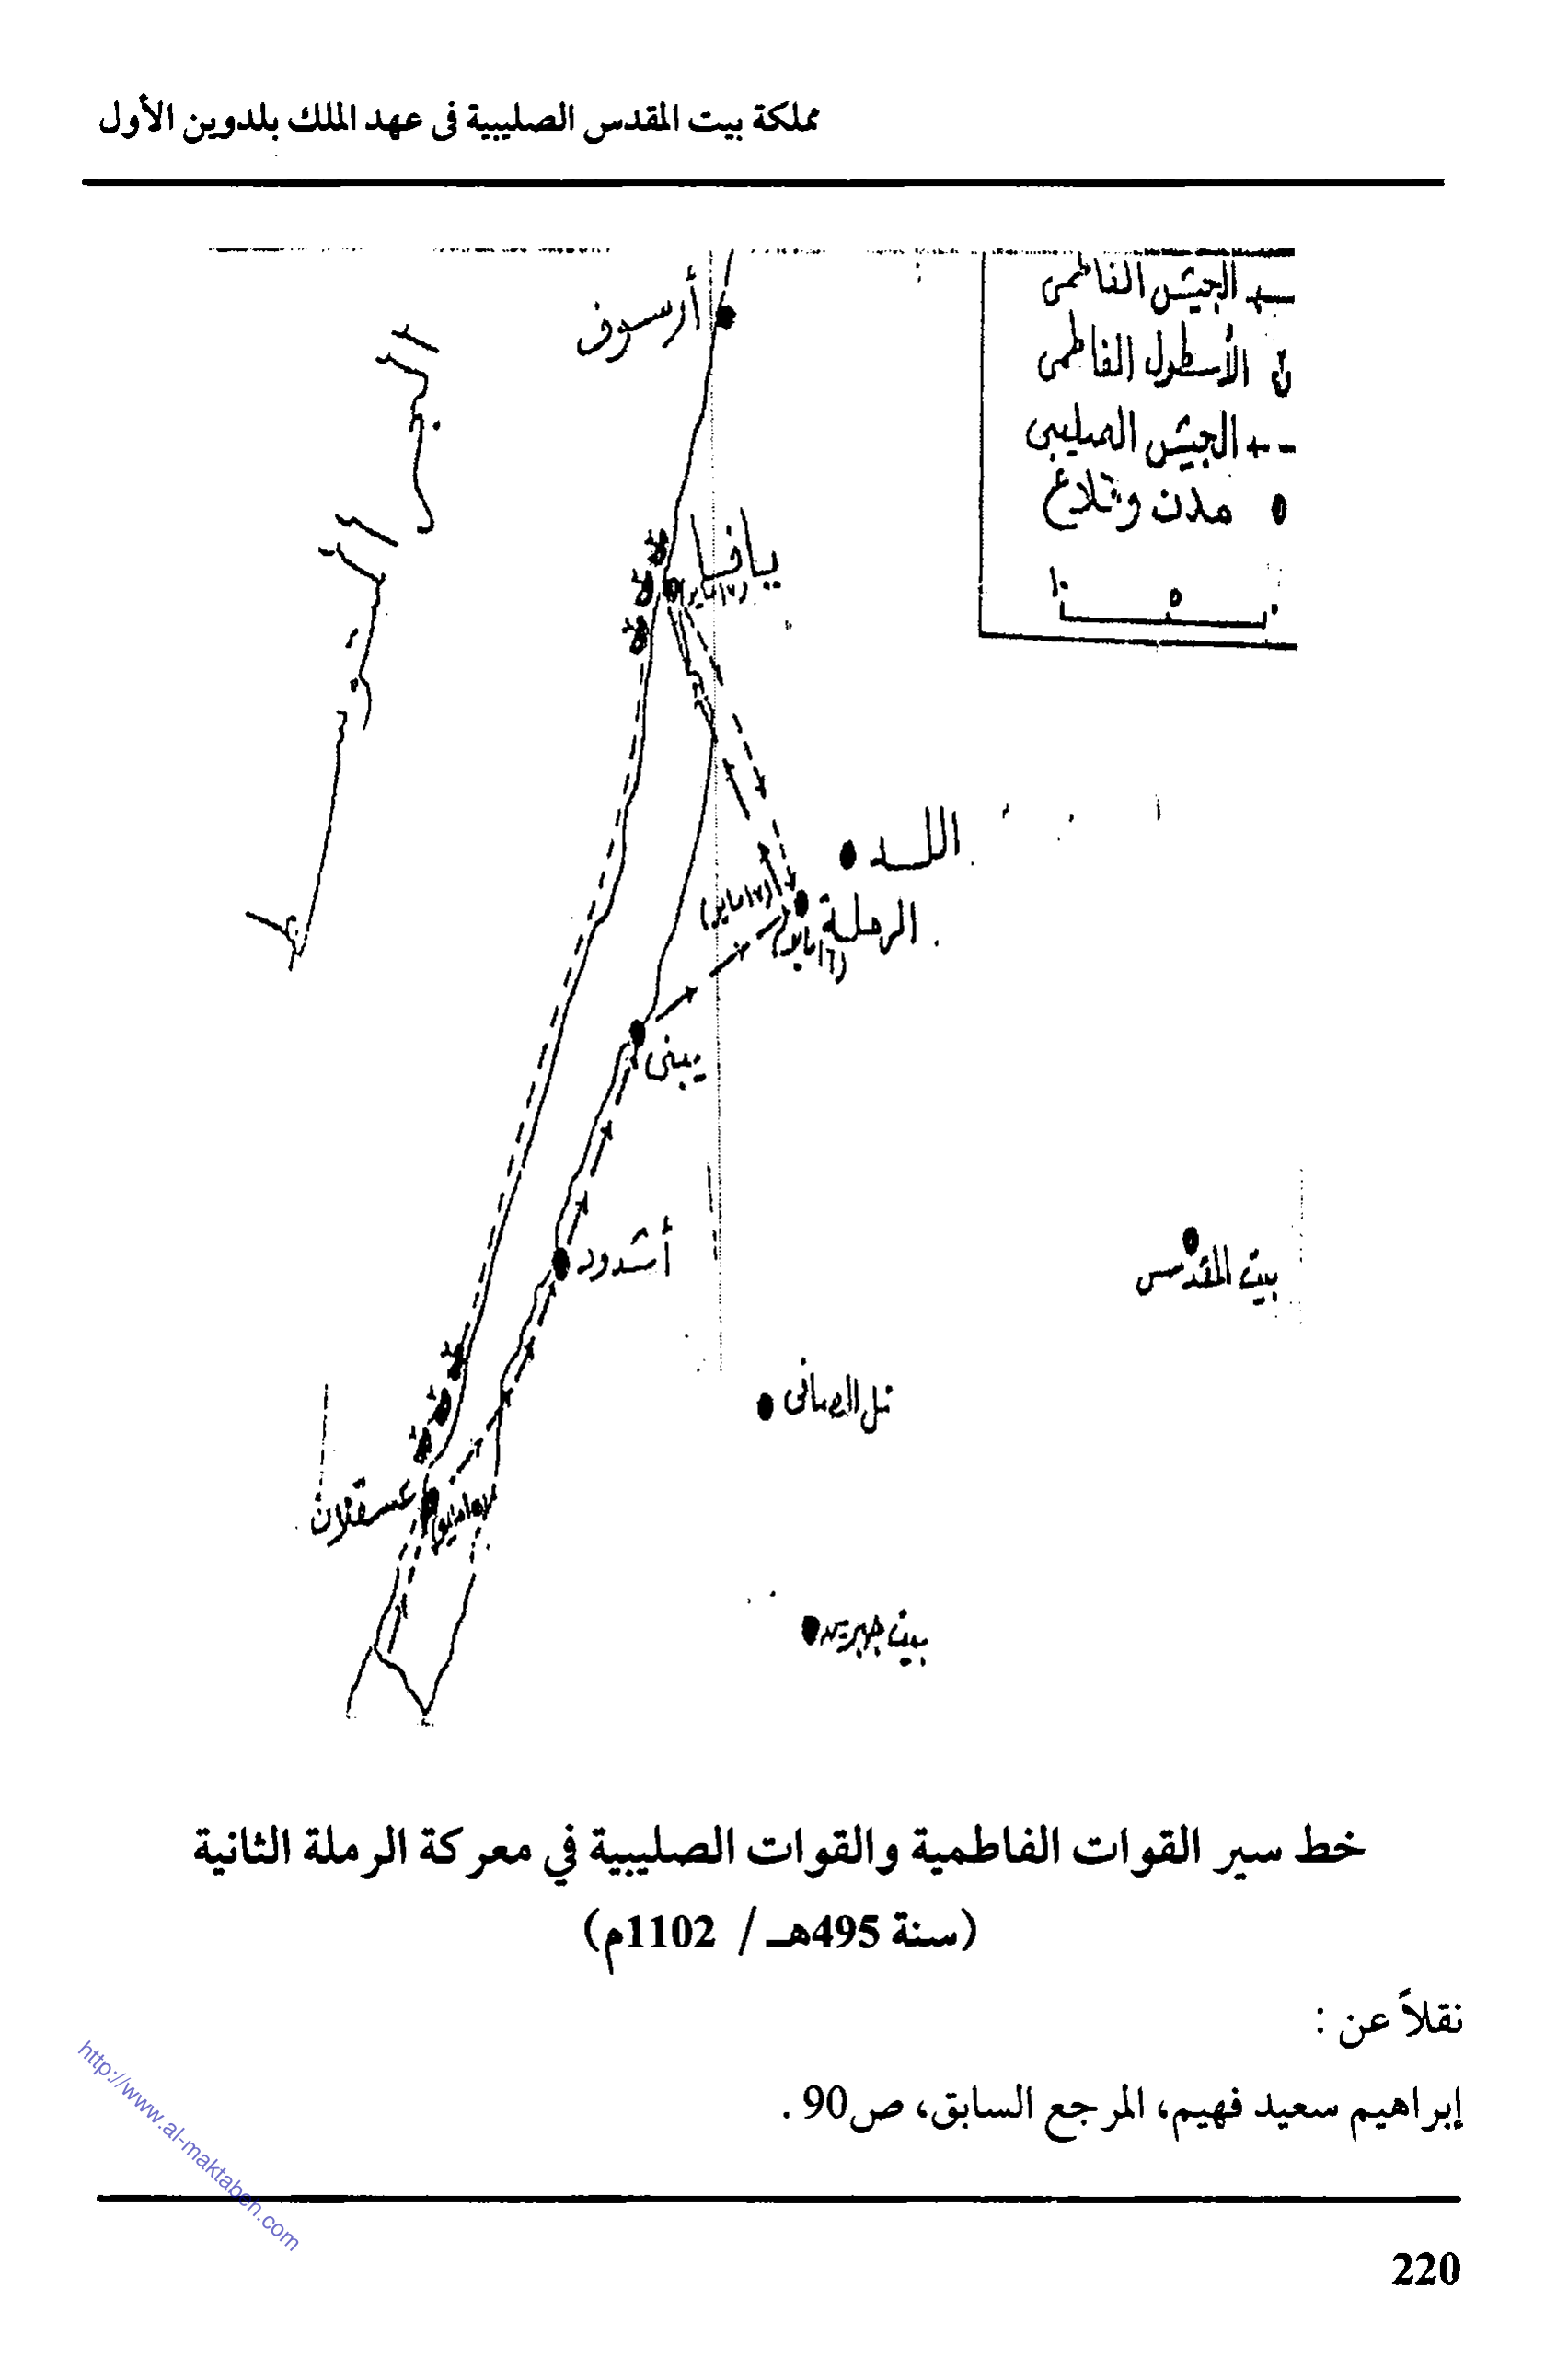 مملكة بيت المقدس الصليبية فى عهد الملك بلدوين الأول
الجيش الفاطمى
الأسطول الفاطمى
الجيش الصليبى
مدن وقلاع
٠ ٥ ١٠
أرسوف
البحر المتوسط
يافا
(١٧ مايو)
اللد
الرملة
(١٧ مايو)
(١٦ مايو)
يبنى
أشدود
بيت المقدس
تل الصافى
عسقلان
بيت جبرين
خط سير القوات الفاطمية والقوات الصليبية في معركة الرملة الثانية
(سنة 495هـ / 1102م)
نقلاً عن :
إبراهيم سعيد فهيم، المرجع السابق، ص90 .
220
http://www.al-maktabeh.com